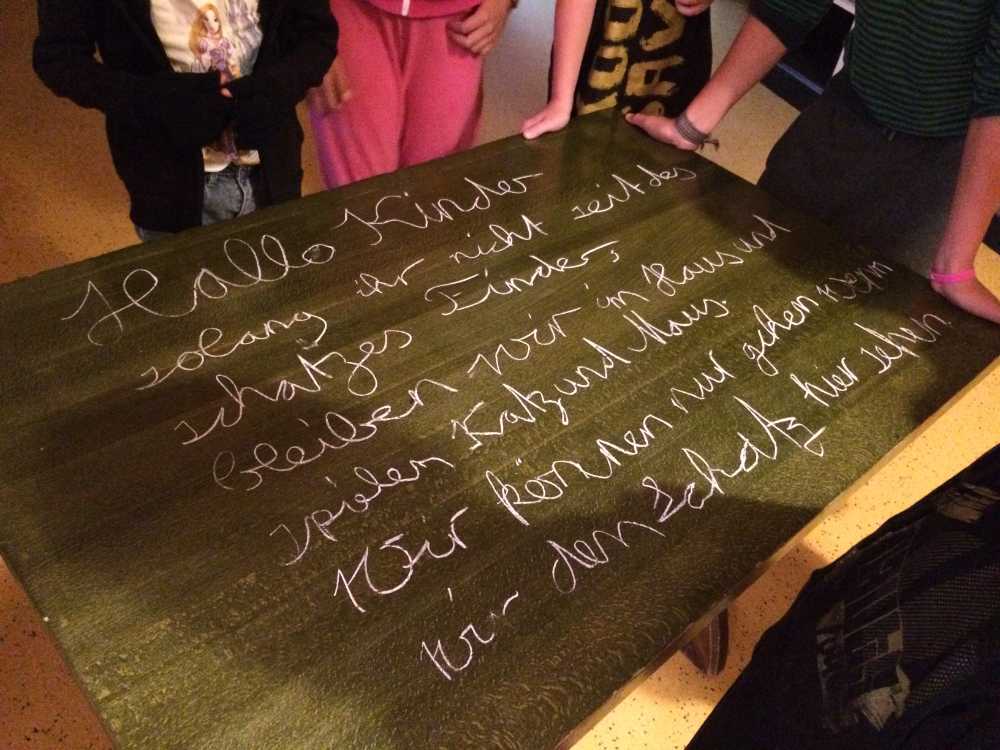 Hallo Kinder
solang ihr nicht seit des
schatzes Finder,
bleiben wir im Haus und
spielen Katz und Maus.
Wir können nur gehen wenn
wir den Schatz hier sehen.